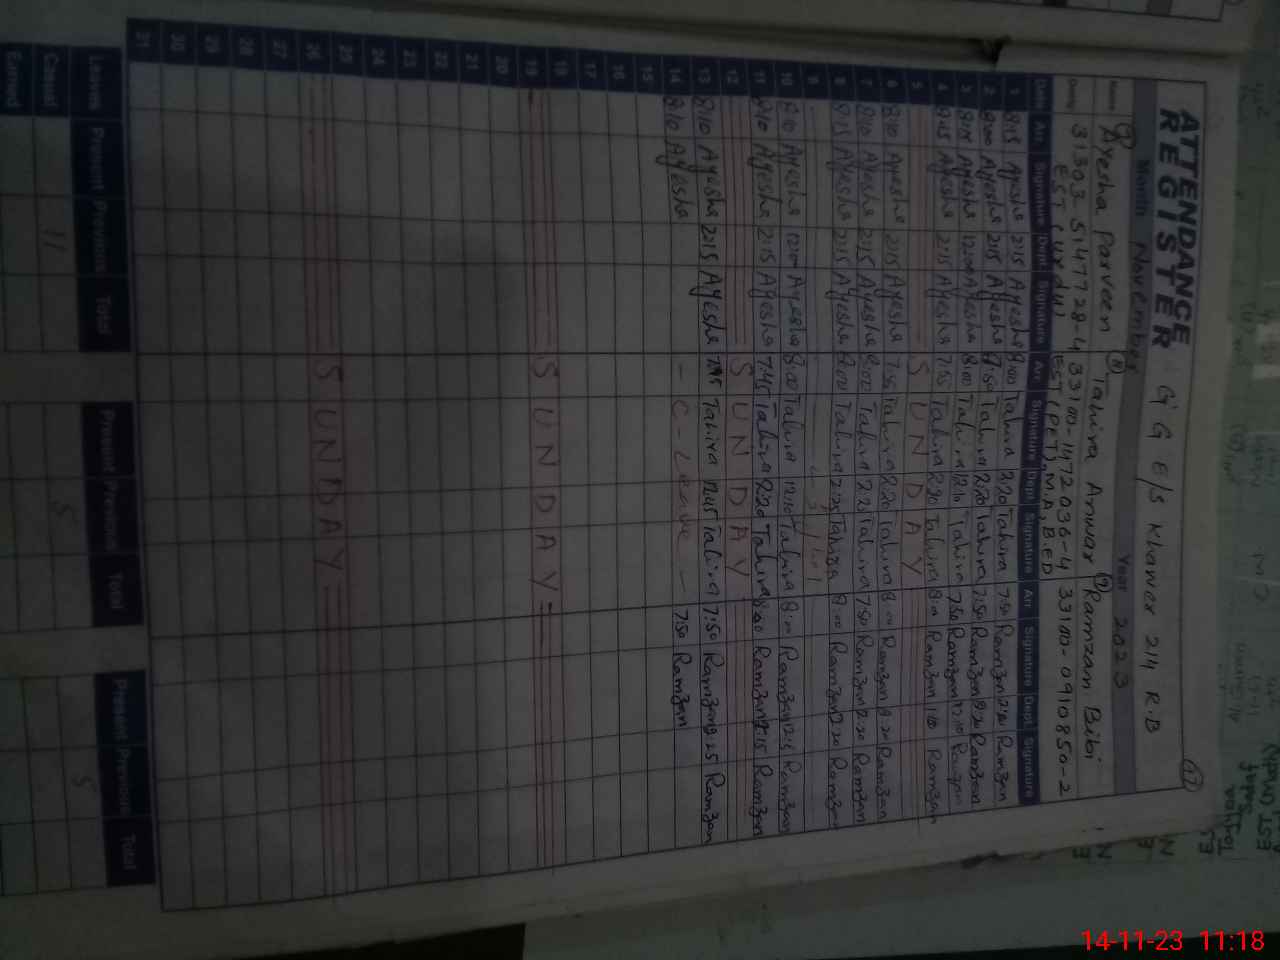 ATTENDANCE
REGISTER
G G E/S Khanox 214 R.B
17
Month November Year 2023
Name 8 Ayesha Parveen 8 Tahira Anwar 9 Ramzam Bibi
31303 5147728-4 33100-1472036-4 33100-0910850-2
EST (Urdu) EST (PET), M.A, B.ED
Date Arr. Signature Dept Signature Arr Signature Dept Signature Arr Signature Dept Signature
1 8:15 Ayesha 2:15 Ayesha 8:00 Tahira 2:20 Tahira 7:50 Ramzan Ramzan
2 8:00 Ayesha 2:15 Ayesha 7:50 Tahira 2:20 Tahira 7:50 Ramzan 2:20 Ramzan
3 Ayesha 12:00 Ayesha 8:00 Tahira 12:10 Tahira 7:50 Ramzan 12:10 Ramzan
4 8:15 Ayesha 2:15 Ayesha 7:55 Tahira 2:20 Tahira 8:00 Ramzan Ramzan
5 SUNDAY
6 8:10 Ayesha 2:15 Ayesha 7:55 Tahira 2:20 Tahira 8:00 Ramzan 2:20 Ramzan
7 8:10 Ayesha 2:15 Ayesha 8:00 Tahira 2:25 Tahira 7:50 Ramzan 2:20 Ramzan
8 8:15 Ayesha 2:15 Ayesha 8:00 Tahira 2:25 Tahira 8:00 Ramzan 2:20 Ramzan
10 8:10 Ayesha 12:10 Ayesha 8:00 Tahira 12:10 Tahira 8:00 Ramzan 12:15 Ramzan
11 8:10 Ayesha 2:15 Ayesha 7:45 Tahira 2:20 Tahira 8:00 Ramzan 2:15 Ramzan
12 SUNDAY
13 8:10 Ayesha 2:15 Ayesha 7:45 Tahira 12:45 Tahira 7:50 Ramzan 2:25 Ramzan
14 8:10 Ayesha - C-Leave - 7:50 Ramzan
15
16
17
18
19 SUNDAY
20
21
22
23
24
25
26 SUNDAY
27
28
29
30
31
Leaves Present Previous Total Present Previous Total Present Previous Total
Casual 11 5 5
Earned
EST (Math)
14-11-23 11:18